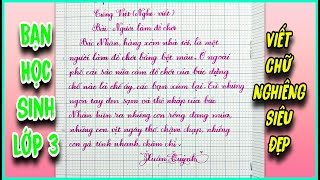 BẠN
HỌC
SINH
LỚP 3
Tiếng Việt (Nghe viết)
Bài: Người làm đồ chơi
Bác Nhân, hàng xóm nhà tôi, là một
người làm đồ chơi bằng bột màu. Ở ngoài
phố, cái sào nứa cắm đồ chơi của bác dựng
chỗ nào là chỗ ấy, các bạn xúm lại. Cả những
ngón tay đen sạm và thô nháp của bác
Nhân hiện ra những con rồng đang múa,
những con vịt ngây thơ, chậm chạp, những
con gà tính nhanh, chăm chỉ.
Xuân Quỳnh
VIẾT
CHỮ
NGHIÊNG
SIÊU
ĐẸP